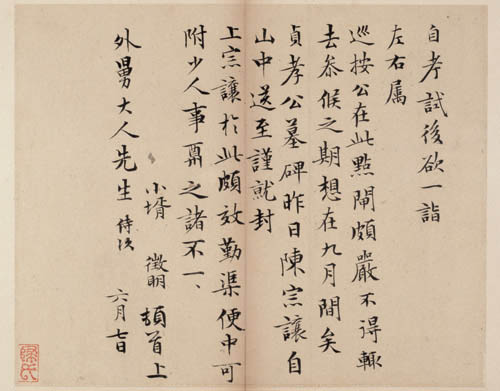 自考試後欲一詣
左右属
巡按公在此點閘頗嚴不得輒
去叅候之期想在九月間矣
貞孝公墓碑昨日陳宗讓自
山中送至謹就封
上宗讓於此頗效勤渠便中可
附少人事䎡之諸不一、
小壻 徵明 頓首上
外舅大人先生 侍次
六月七日